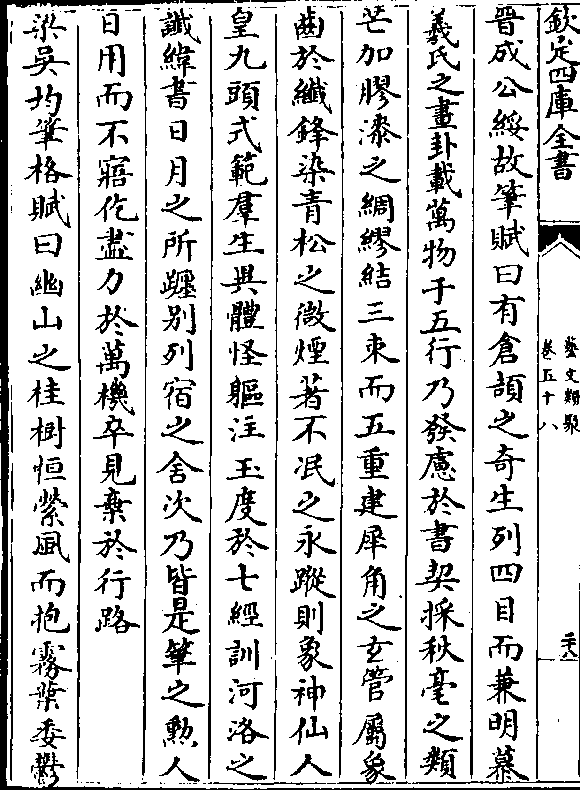 欽定四庫全書
藝文類聚
卷五十八
二十八
晉成公綏故筆賦曰有倉頡之奇生列四目而兼明慕
羲氏之畫卦載萬物于五行乃發慮於書契採秋毫之類
芒加膠漆之綢繆結三束而五重建犀角之玄管屬象
齒於纖鋒染青松之微煙著不泯之永蹤則象神仙人
皇九頭式範羣生異體怪軀注玉度於七經訓河洛之
讖緯書日月之所躔別列宿之舍次乃皆是筆之勲人
日用而不寤仡盡力於萬機卒見棄於行路
梁吳均筆格賦曰幽山之桂樹恒縈風而抱霧葉委鬱